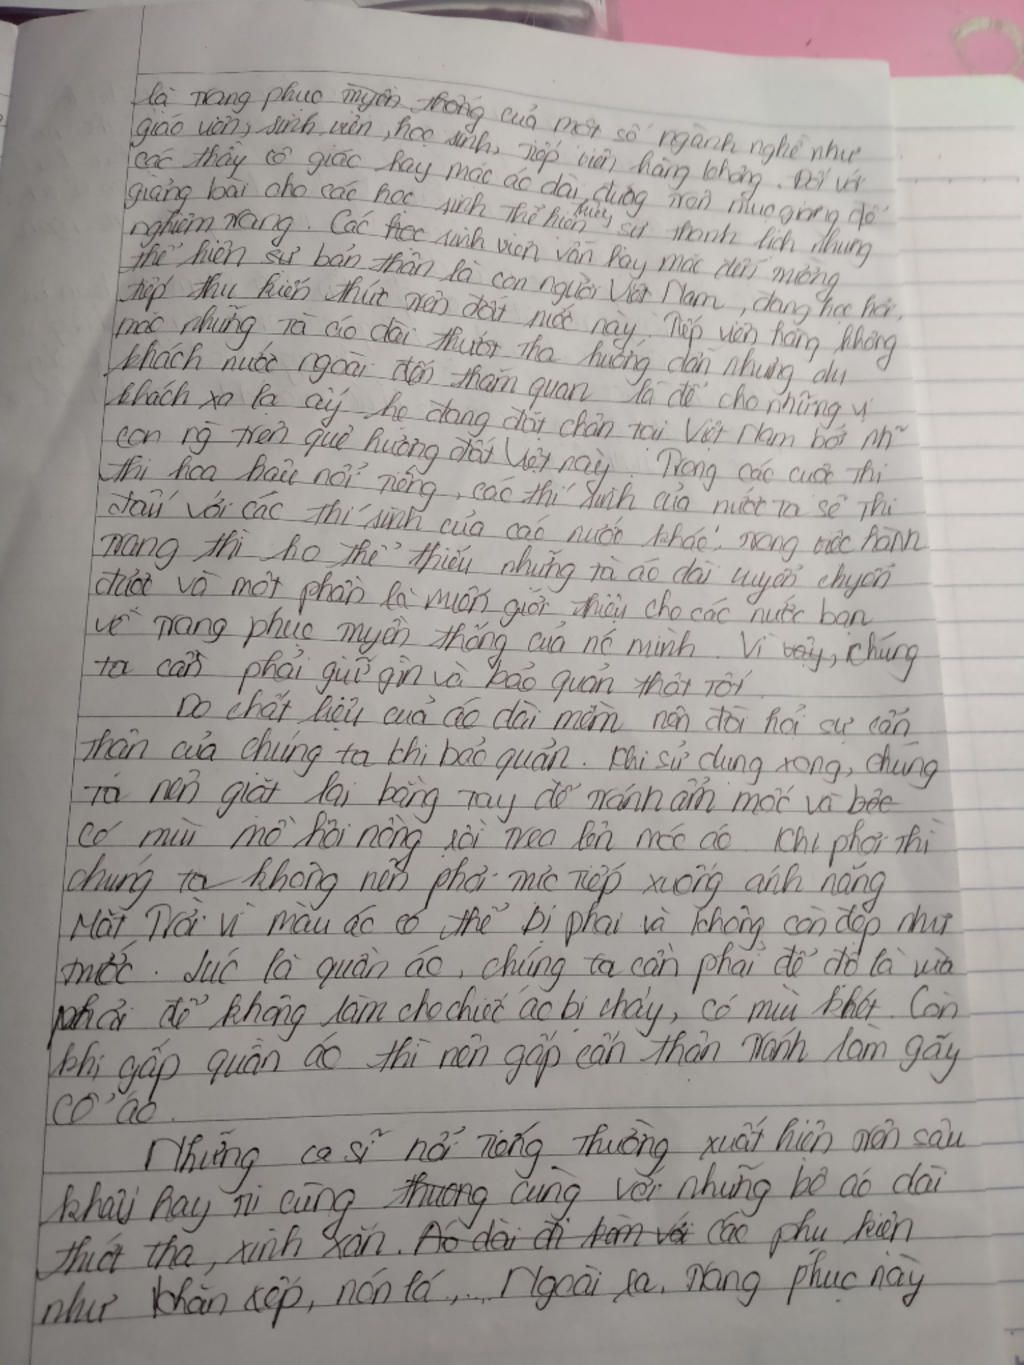 là trang phục truyền thống của một số ngành nghề như
giáo viên, sinh viên, học sinh, tiếp viên hàng không. Đối với
các thầy cô giác hay mặc áo dài đứng trên mục giảng để
giảng bài cho các học sinh thể hiện sự thanh lịch nhưng
nghiêm trang. Các học sinh viên vẫn hay mặc đến trường
thể hiện sự bản thân là con người Việt Nam, đang học hỏi,
tiếp thu kiến thức trên đất nước này. Tiếp viên hàng không
mặc những tà áo dài thướt tha hướng dẫn những du
khách nước ngoài đến thăm quan là để cho những vị
khách xa lạ ấy họ đang đặt chân tại Việt Nam bởi nh~
con ng trên quê hương đất Việt này. Trong các cuộc thi
thi hoa hậu nổi tiếng, các thí sinh của nước ta sẽ thi
đấu với các thí sinh của các nước khác, trong việc hành
trang thì ko thể thiếu những tà áo dài uyển chuyển
được và một phần là muốn giới thiệu cho các nước bạn
về trang phục truyền thống của nc mình. Vì vậy, chúng
ta cần phải giữ gìn và bảo quản thật tốt.
Do chất liệu cuả áo dài mềm nên đòi hỏi sự cẩn
thận của chúng ta khi bảo quản. Khi sử dụng xong, chúng
ta nên giặt lại bằng tay để tránh ẩm mốc và bốc
có mùi mồ hôi nồng rồi treo lên móc áo. Khi phơi thì
chúng ta không nên phơi trực tiếp xuống ánh nắng
Mặt Trời vì màu áo có thể bị phai và không còn đẹp như
trước. Lúc là quần áo, chúng ta cần phải để độ là vừa
phải để không làm cho chiếc áo bị cháy, có mùi khét. Còn
khi gấp quần áo thì nên gấp cẩn thận tránh làm gãy
cổ áo.
Những ca sĩ nổi tiếng thường xuất hiện trên sâu
khấu hay ti cùng thương cùng với những bộ áo dài
thướt tha, xinh xắn. Áo dài đi kèm với các phụ kiện
như khăn xếp, nón lá,... Ngoài ra, trang phục này